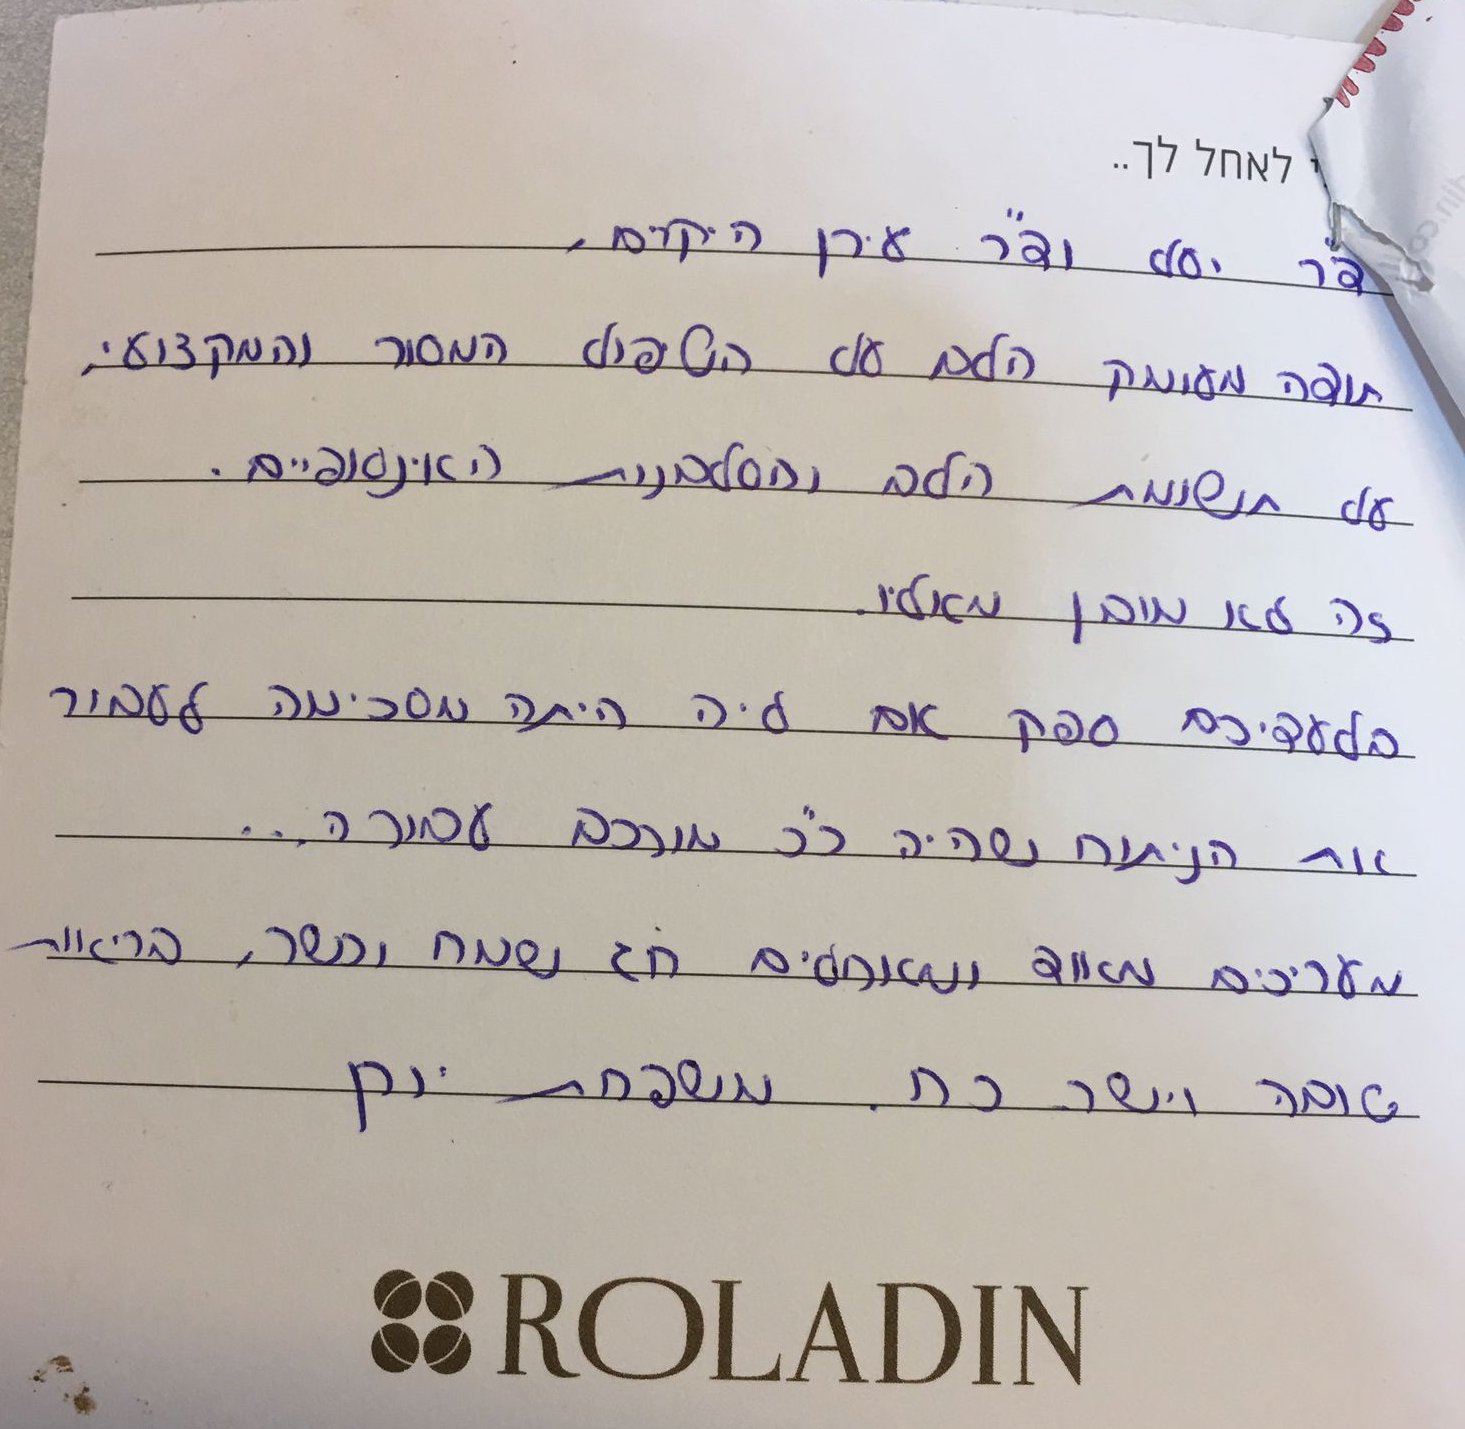 לאחל לך..
ד"ר יסל וד"ר עירן היקרים,
תודה מעומק הלב על הטיפול המסור והמקצועי,
על תשומת הלב והסבלנות האינסופיים.
זה לא מובן מאליו.
בלעדיכם ספק אם ליה היתה מסכימה לעבור
את הניתוח שהיה כ"כ מורכב עבורה...
מעריכים מאוד ומאחלים חג שמח וכשר, בריאות
טובה ויישר כח. משפחת
ROLADIN